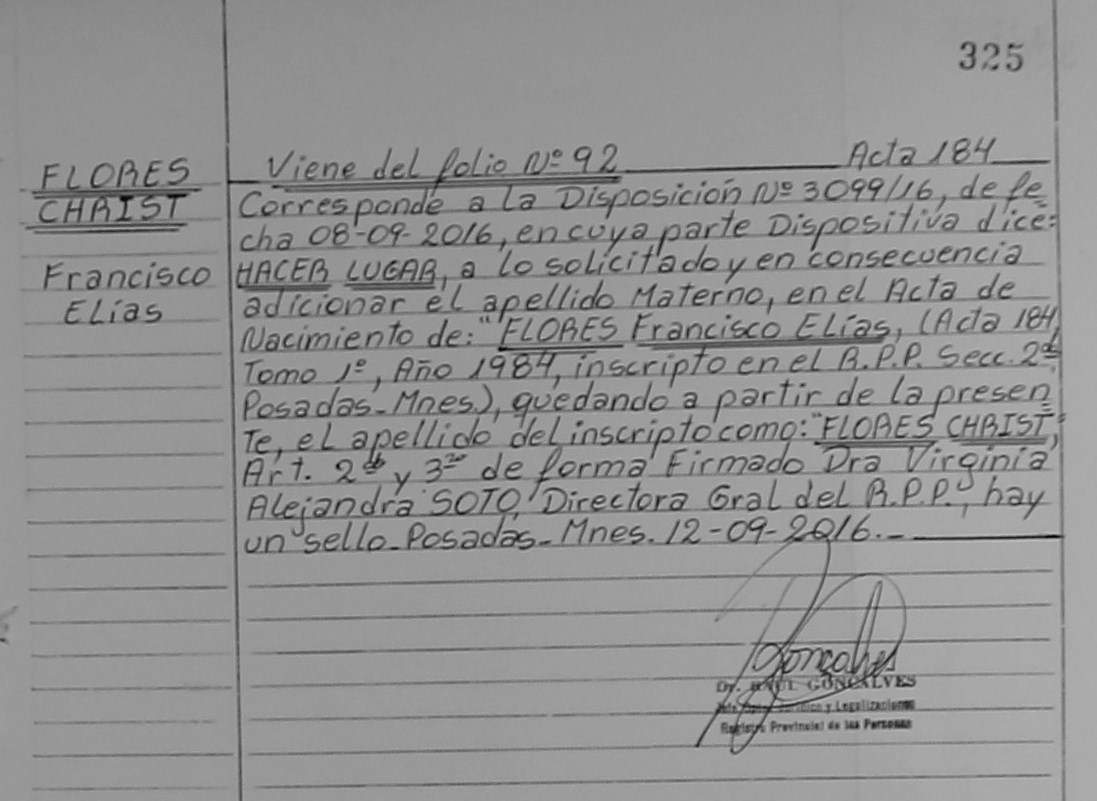 325
FLORES
CHRIST
Francisco
Elías
Viene del folio Nº 92 Acta 184
Corresponde a la Disposición Nº 3099/16, de fe
cha 08-09-2016, en cuya parte Dispositiva dice:
HACER LUGAR, a lo solicitado y en consecuencia
adicionar el apellido Materno, en el Acta de
Nacimiento de: "FLORES Francisco Elías, (Acta 184,
Tomo 1º, Año 1984, inscripto en el R.P.P. Secc. 2da
Posadas-Mnes.), quedando a partir de la presen
te, el apellido del inscripto como: "FLORES CHRIST",
Art. 2do y 3ro de forma Firmado Dra Virginia
Alejandra SOTO, Directora Gral del R.P.P., hay
un sello-Posadas-Mnes. 12-09-2016.-
Goncalves
Dr. RAUL GONCALVES
Jurídico y Legalizaciones
Registro Provincial de las Personas